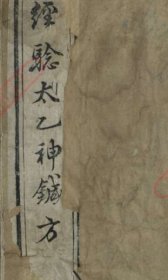 經驗太乙神鍼方